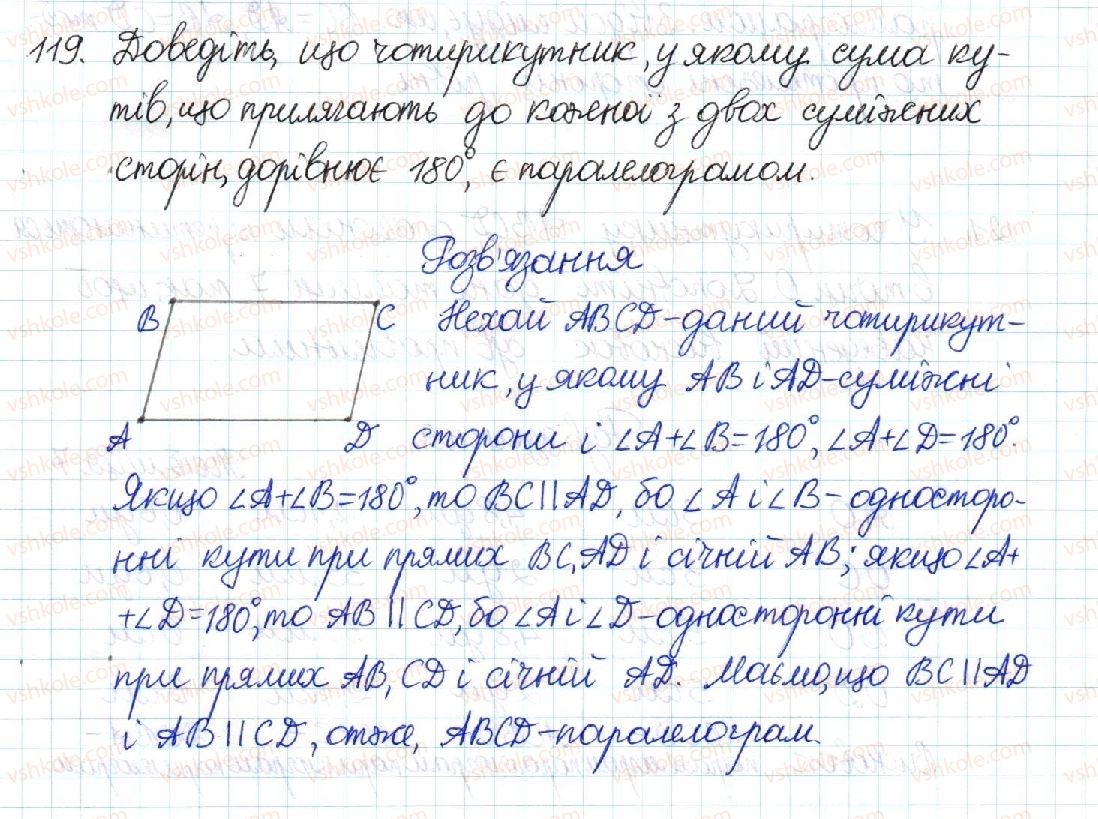 119. Доведіть, що чотирикутник, у якому сума ку-
тів, що прилягають до кожної з двох суміжних
сторін, дорівнює 180°, є паралелограмом.
Розв'язання
B C Нехай ABCD-даний чотирикут-
ник, у якому AB і AD-суміжні
A D сторони і ∠A+∠B=180°, ∠A+∠D=180°.
Якщо ∠A+∠B=180°, то BC||AD, бо ∠A і ∠B-односторо-
нні кути при прямих BC, AD і січній AB; якщо ∠A+
+∠D=180°, то AB||CD, бо ∠A і ∠D-односторонні кути
при прямих AB, CD і січній AD. Маємо, що BC||AD
і AB||CD, отже, ABCD-паралелограм.